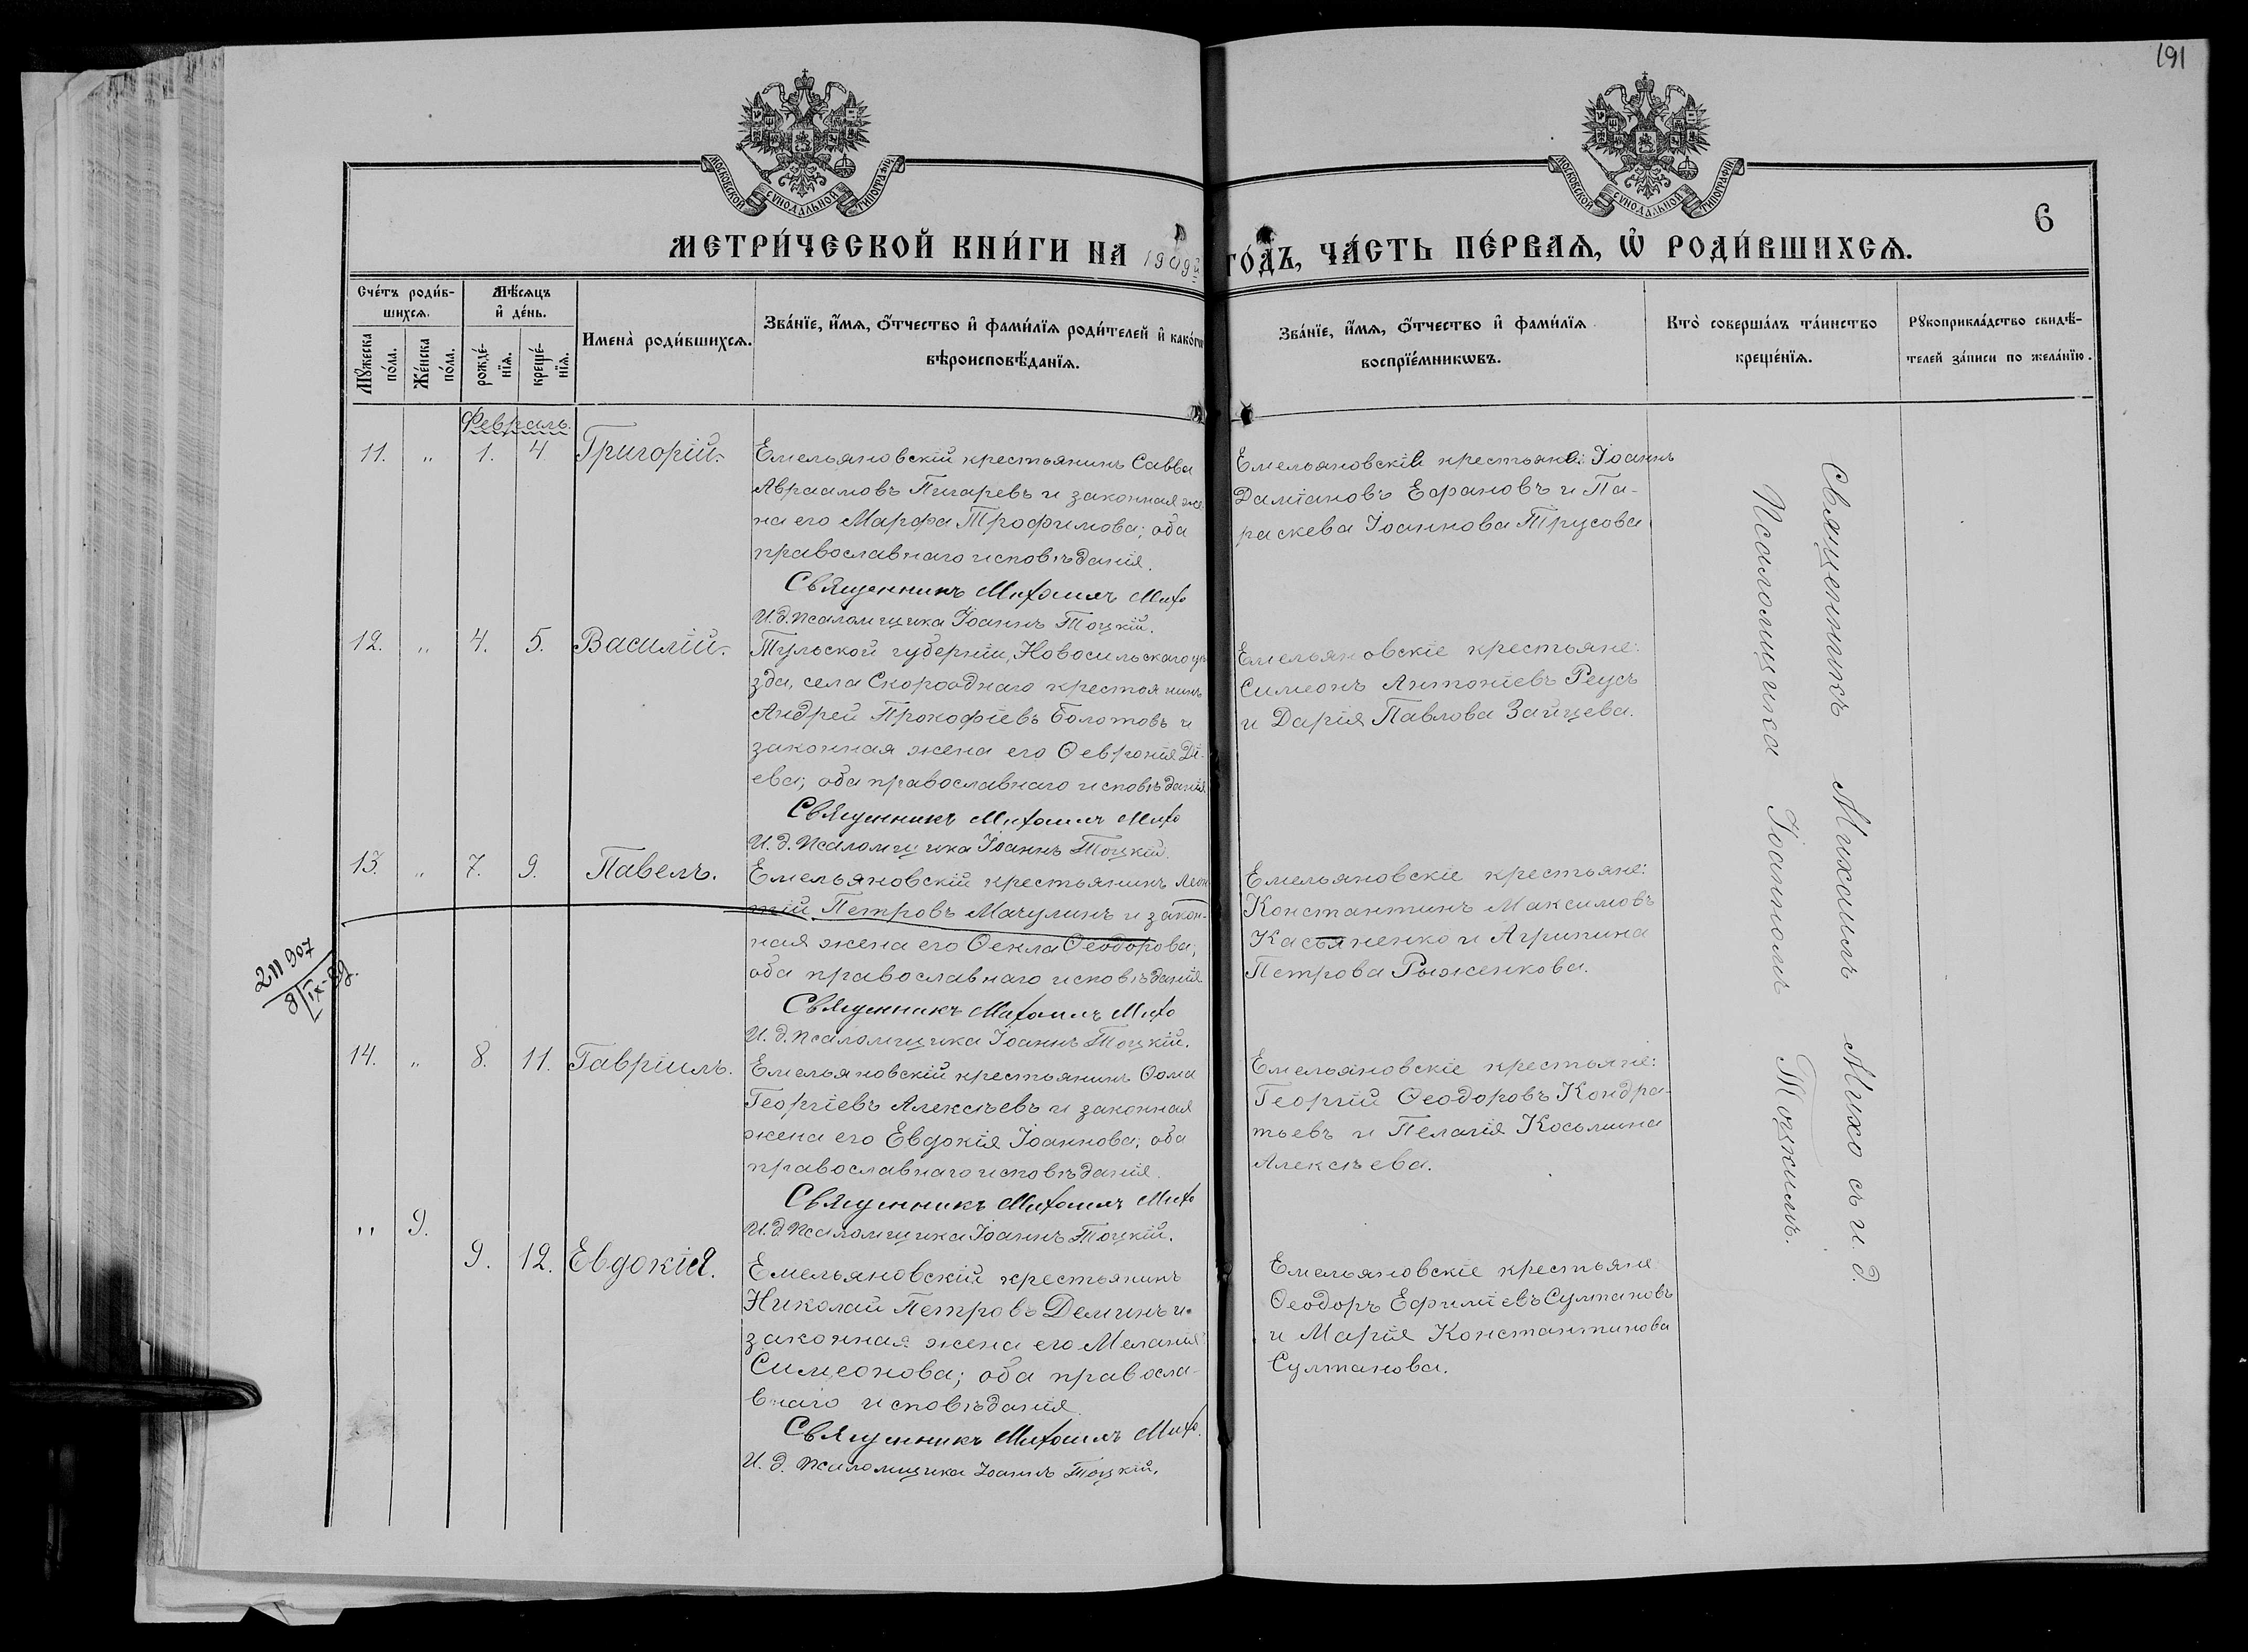 191
МОСКОВСКОЙ СѴНОДАЛЬНОЙ ТИПОГРАФІИ
МОСКОВСКОЙ СѴНОДАЛЬНОЙ ТИПОГРАФІИ
6
МЕТРИ́ЧЕСКОЙ КНИ́ГИ НА 1909й ГО́ДЪ, ЧА́СТЬ ПЕ́РВАѦ, Ѡ҆ РОДИ́ВШИХСѦ.
Сче́тъ роди́в-
шихсѧ.
Мѣ́сѧцъ
и҆ де́нь.
Мꙋ́жеска
по́ла.
Же́нска
по́ла.
рожде́-
нїѧ.
креще́-
нїѧ.
Имена̀ роди́вшихсѧ.
Зва́нїе, и҆́мѧ, ѻ҆́тчество и҆ фами́лїѧ роди́телей и҆ како́гѡ
вѣроисповѣ́данїѧ.
Зва́нїе, и҆́мѧ, ѻ҆́тчество и҆ фами́лїѧ
воспрїе́мникѡвъ.
Кто̀ соверша́лъ та́инство
креще́нїѧ.
Рꙋкоприкла́дство свидѣ́-
телей за́писи по жела́нїю.
Февраль.
11. „ 1. 4 Григорій.
Емельяновскій крестьянинъ Савва
Авраамовъ Пигаревъ и законная же-
на его Марфа Трофимова; оба
православнаго исповѣданія.
Священникъ Михаилъ Михо
И. д. псаломщика Іоаннъ Тоцкій.
Емельяновскіе крестьяне: Іоаннъ
Даміановъ Ефановъ и Па-
раскева Іоаннова Трусова
12. „ 4. 5. Василій.
Тульской губерніи, Новосильскаго уѣ-
зда, села Скороднаго крестьянинъ
Андрей Прокофіевъ Болотовъ и
законная жена его Ѳеврония Ді-
ева; оба православнаго исповѣданія
Священникъ Михаилъ Михо
И. д. Псаломщика Іоаннъ Тоцкій.
Емельяновскіе крестьяне:
Симеонъ Антоніевъ Реусъ
и Дарія Павлова Зайцева.
13. „ 7. 9. Павелъ.
Емельяновскій крестьянинъ Леон-
тій Петровъ Мачулинъ и закон-
ная жена его Ѳекла Ѳеодорова;
оба православнаго исповѣданія
Священникъ Михаилъ Михо
И. д. псаломщика Іоаннъ Тоцкій.
Емельяновскіе крестьяне:
Константинъ Максимовъ
Касьяненко и Агрипина
Петрова Рыженкова.
211907
8/IX-89.
14. „ 8. 11. Гавріилъ.
Емельяновскій крестьянинъ Ѳома
Георгіевъ Алексѣевъ и законная
жена его Евдокія Іоаннова; оба
православнаго исповѣданія.
Священникъ Михаилъ Михо
И. д. Псаломщика Іоаннъ Тоцкій.
Емельяновскіе крестьяне:
Георгій Ѳеодоровъ Кондра-
тьевъ и Пелагія Косьмина
Алексѣева.
„ 9. 9. 12. Евдокія.
Емельяновскій крестьянинъ
Николай Петровъ Деминъ и
законная жена его Меланія
Симеонова; оба правосла-
внаго исповѣданія.
Священникъ Михаилъ Михо.
И. д. Псаломщика Іоаннъ Тоцкій.
Емельяновскіе крестьяне
Ѳеодоръ Ефиміевъ Султановъ
и Марія Константинова
Султанова.
Священникъ Михаилъ Михо съ и. д.
Псаломщика Іоанномъ Тоцкимъ.